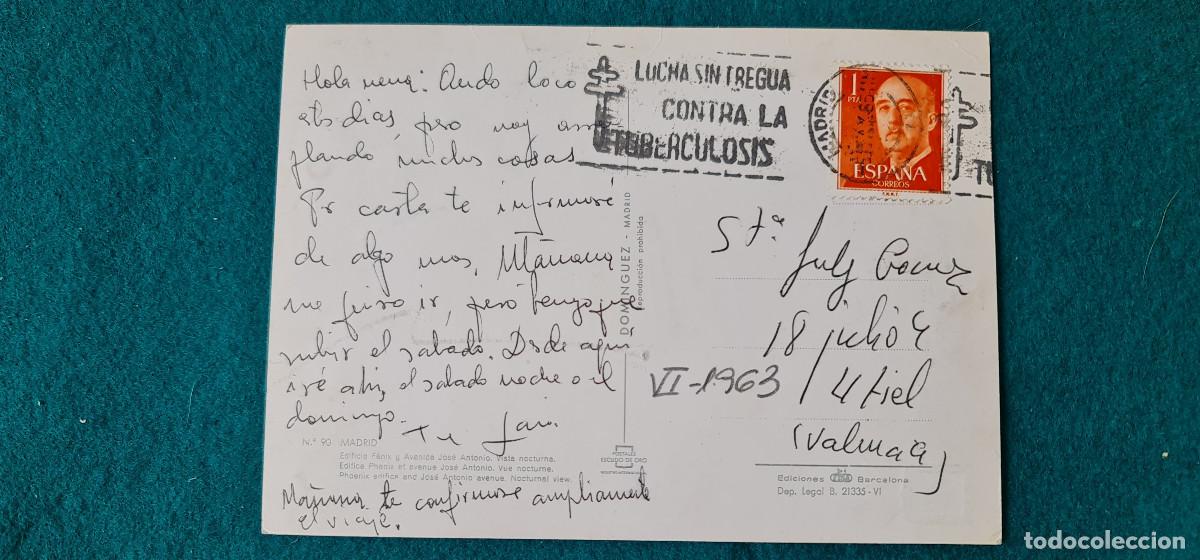 Hola nena: Ando loco
estos dias, pero voy arre
glando muchas cosas
Por carta te informaré
de algo mas. Mañana
me quiero ir, pero tengo que
subir el sabado. Desde aquí
iré ahi, el sabado noche o el
domingo.
Tu
Nº 90 MADRID
Edificio Fénix y Avenida José Antonio. Vista nocturna.
Edifice Phenix et avenue José Antonio. Vue nocturne.
Phoenix edifice and José Antonio avenue. Nocturnal view.
Mañana te confirmaré ampliamente
el viaje.
DOMINGUEZ - MADRID
reproducción prohibida
POSTALES
ESCUDO DE ORO
LUCHA SIN TREGUA
CONTRA LA
TUBERCULOSIS
MADRID
1
PTA
ESPAÑA
CORREOS
F.N.M.T.
Stª
18 julio 4
Utiel
(Valencia)
VI-1963
Ediciones Barcelona
Dep. Legal B. 21335-VI
todocoleccion